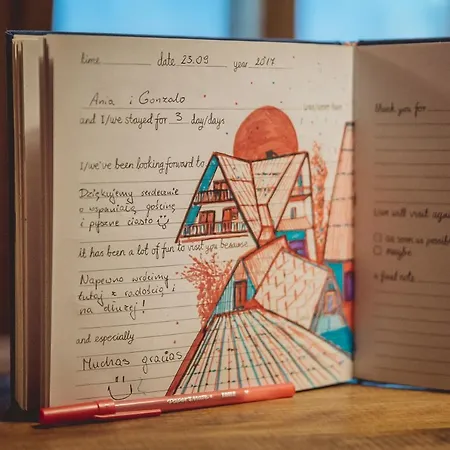 time date 23.09 year 2017
Ania i Gonzalo
and I/we stayed for 3 day/days
I/we've been looking forward to
Dziękujemy serdecznie
o wspaniałą gościnę
i pyszne ciasto
it has been a lot of fun to visit you because
Napewno wrócimy
tutaj z radością i
na dłużej!
and especially
Muchas gracias
thank you for
will visit again
as soon as possible
maybe
a final note